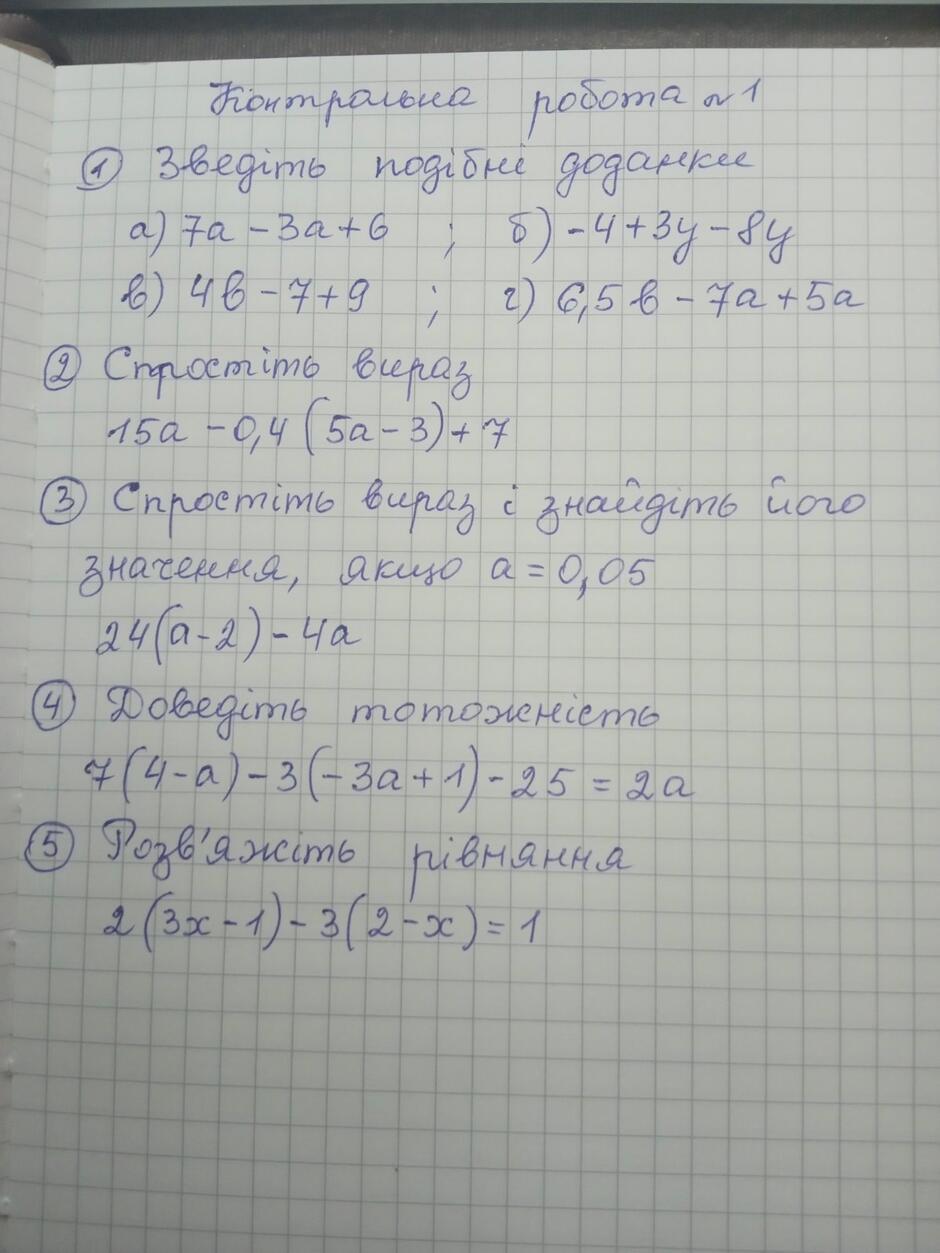 Контрольна робота №1
① Зведіть подібні доданки
а) 7a - 3a + 6 ; б) -4 + 3y - 8y
в) 4b - 7 + 9 ; г) 6,5b - 7a + 5a
② Спростіть вираз
15a - 0,4(5a - 3) + 7
③ Спростіть вираз і знайдіть його
значення, якщо a = 0,05
24(a - 2) - 4a
④ Доведіть тотожність
7(4 - a) - 3(-3a + 1) - 25 = 2a
⑤ Розв'яжіть рівняння
2(3x - 1) - 3(2 - x) = 1